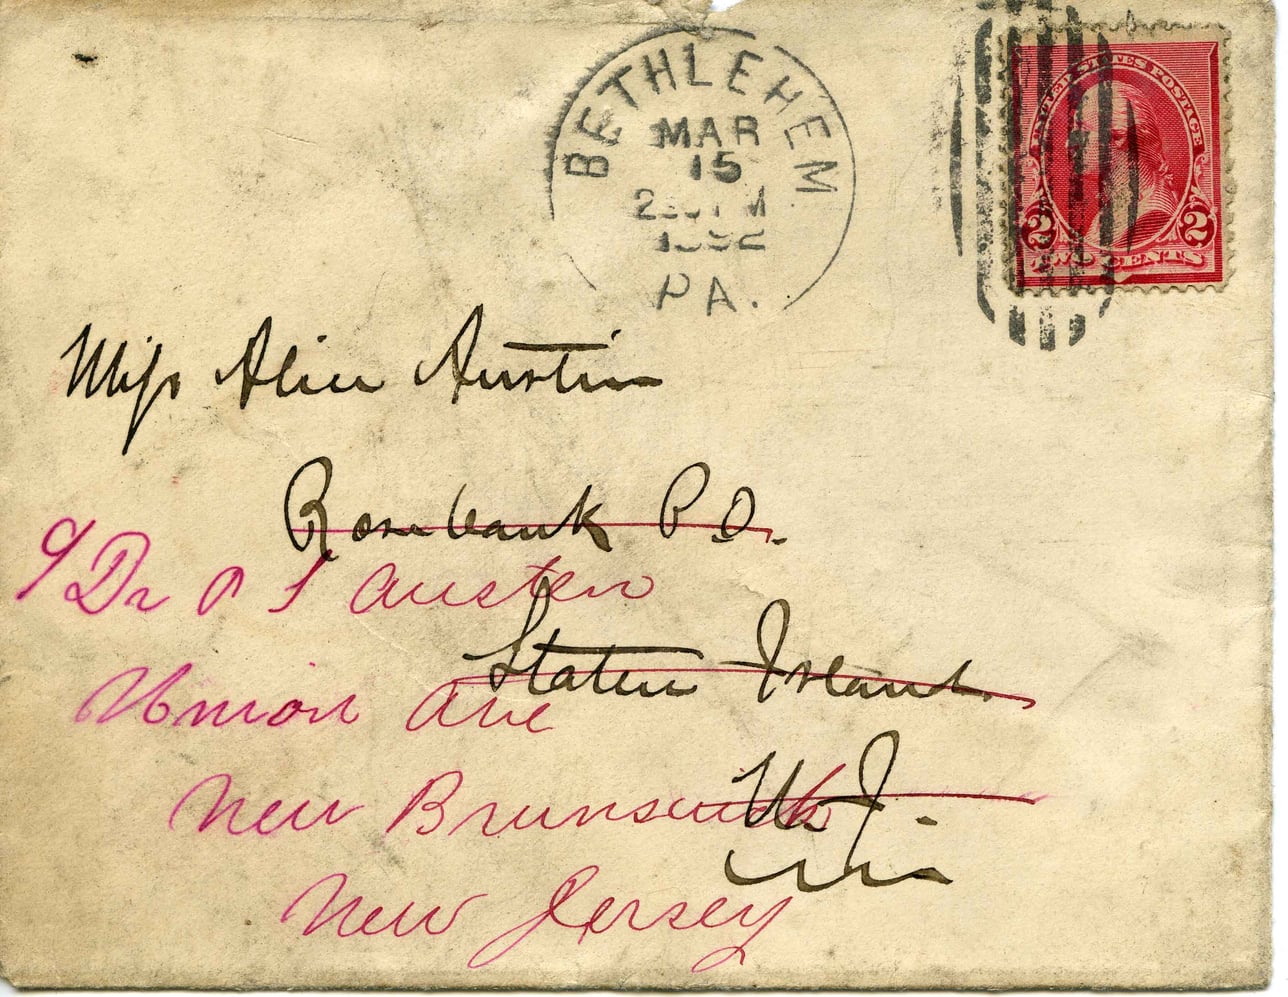 BETHLEHEM
MAR
15
1892
PA.
UNITED STATES POSTAGE
2 2
TWO CENTS
Miss Alice Austin
Rosebank P.O.
Staten Island
c/ Dr P T Austen
Union Ave
New Brunswick
New Jersey